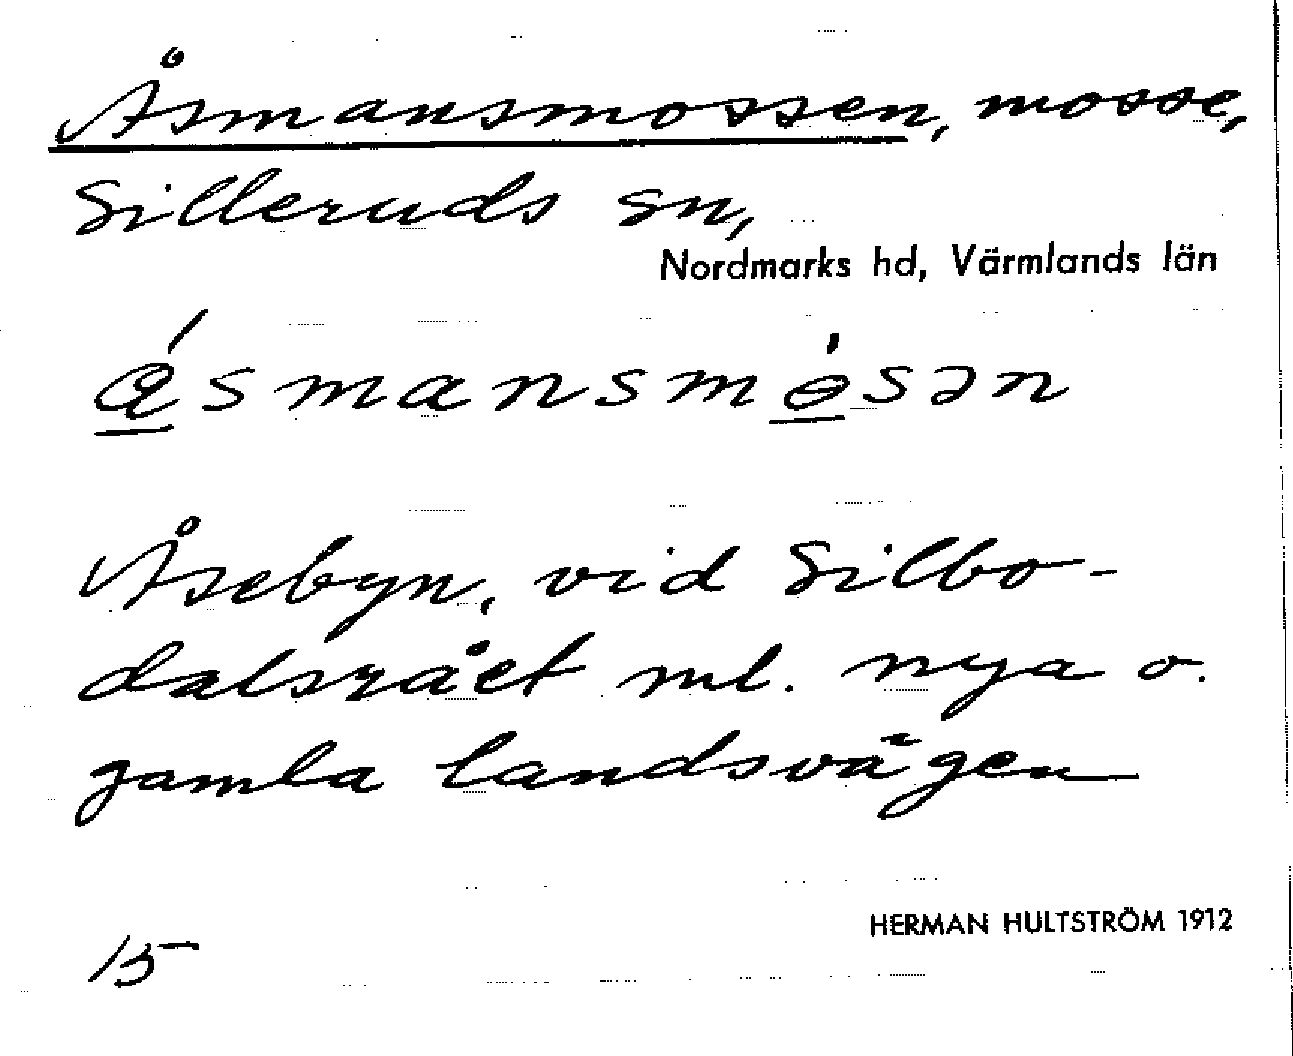 Åsmansmossen, mosse,
Silleruds sn,
Nordmarks hd, Värmlands län
ǻsmansmǿsən
Åsebyn, vid Silbo-
dalsrået ml. nya o.
gamla landsvägen
HERMAN HULTSTRÖM 1912
15